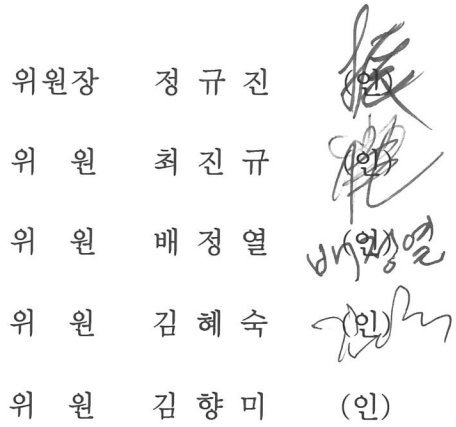 위원장 정 규 진 (인)
위 원 최 진 규 (인)
위 원 배 정 열 (인) 배정열
위 원 김 혜 숙 (인)
위 원 김 향 미 (인)